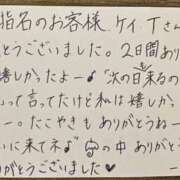 指名のお客様 ケイ.Tさん
とうございました。2日間あり
嬉しかったよー♪ "次の日来るの
って言ってたけど私は嬉しか
ー。たこやきもありがとうねー
いに来てネ♪ の中ありがとう
ありがとうございました♥